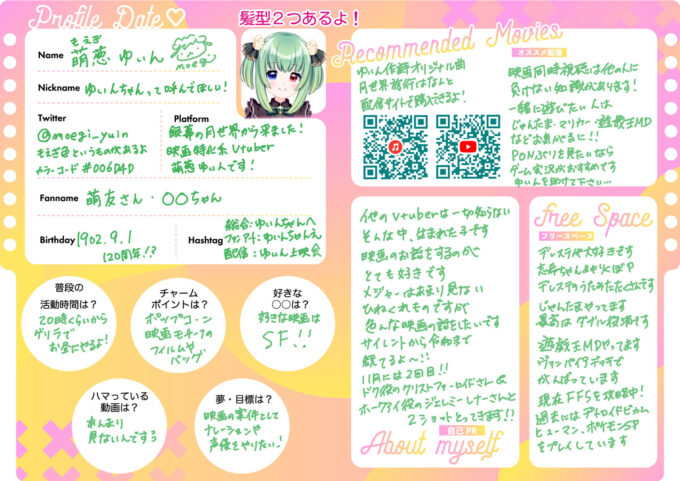 Profile Date♡
髪型2つあるよ!
Name
もえぎ
萌葱 ゆいん
moegi
Nickname
ゆいんちゃんって呼んでほしい!
Twitter
@moegi_yuin
もえぎ色というものがあるよ
カラーコード #006D4D
Platform
銀幕の月世界から来ました!
映画特化系Vtuber
萌葱ゆいんです!
Fanname
萌友さん・〇〇ちゃん
Birthday
1902.9.1
120周年!?
Hashtag
総合:ゆいんちゃんへ
ファンアート:ゆいんちゃんえ
配信:ゆいん上映会
普段の
活動時間は?
20時くらいから
ゲリラで
お昼にやるよ!
チャーム
ポイントは?
ポップコーン
映画モチーフの
フィルムや
バッグ
好きな
〇〇は?
好きな映画は
SF!!
ハマっている
動画は?
あんまり
見ないんですぅ
夢・目標は?
映画の案件として
ナレーションや
声優をやりたい!
Recommended Movies
オススメ配信
ゆいん作詞オリジナル曲
月世界旅行はなんと
配信サイトで購入できるよ!
映画同時視聴は他の人に
負けない知識があります!
一緒に遊びたい人は
じゃんたま・マリカー・遊戯王MD
などお気がるに!!
PONぶりを見たいなら
ゲーム実況がおすすめです
ゆいんを助けて下さい…
他のvtuberは一切知らない
そんな中、生まれた子です
映画のお話をするのが
とても好きです
メジャーはあまり見ない
ひねくれものですが
色んな映画の話をしたいです
サイレントから令和まで
観てるよ〜!!
11月には2回目!!
ドク役のクリストファーロイドさんと
ホークアイ役のジェレミーレナーさんと
2ショットとってきます!!
自己PR
About myself
Free Space
フリースペース
デレステが大好きです
じゃんたまやってます
遊戯王MDやってます
ヴァンパイアデッキで
がんばっています
現在FF5を攻略中!
過去にはデトロイトビカム
ヒューマン、ポケモンSP
をプレイしています